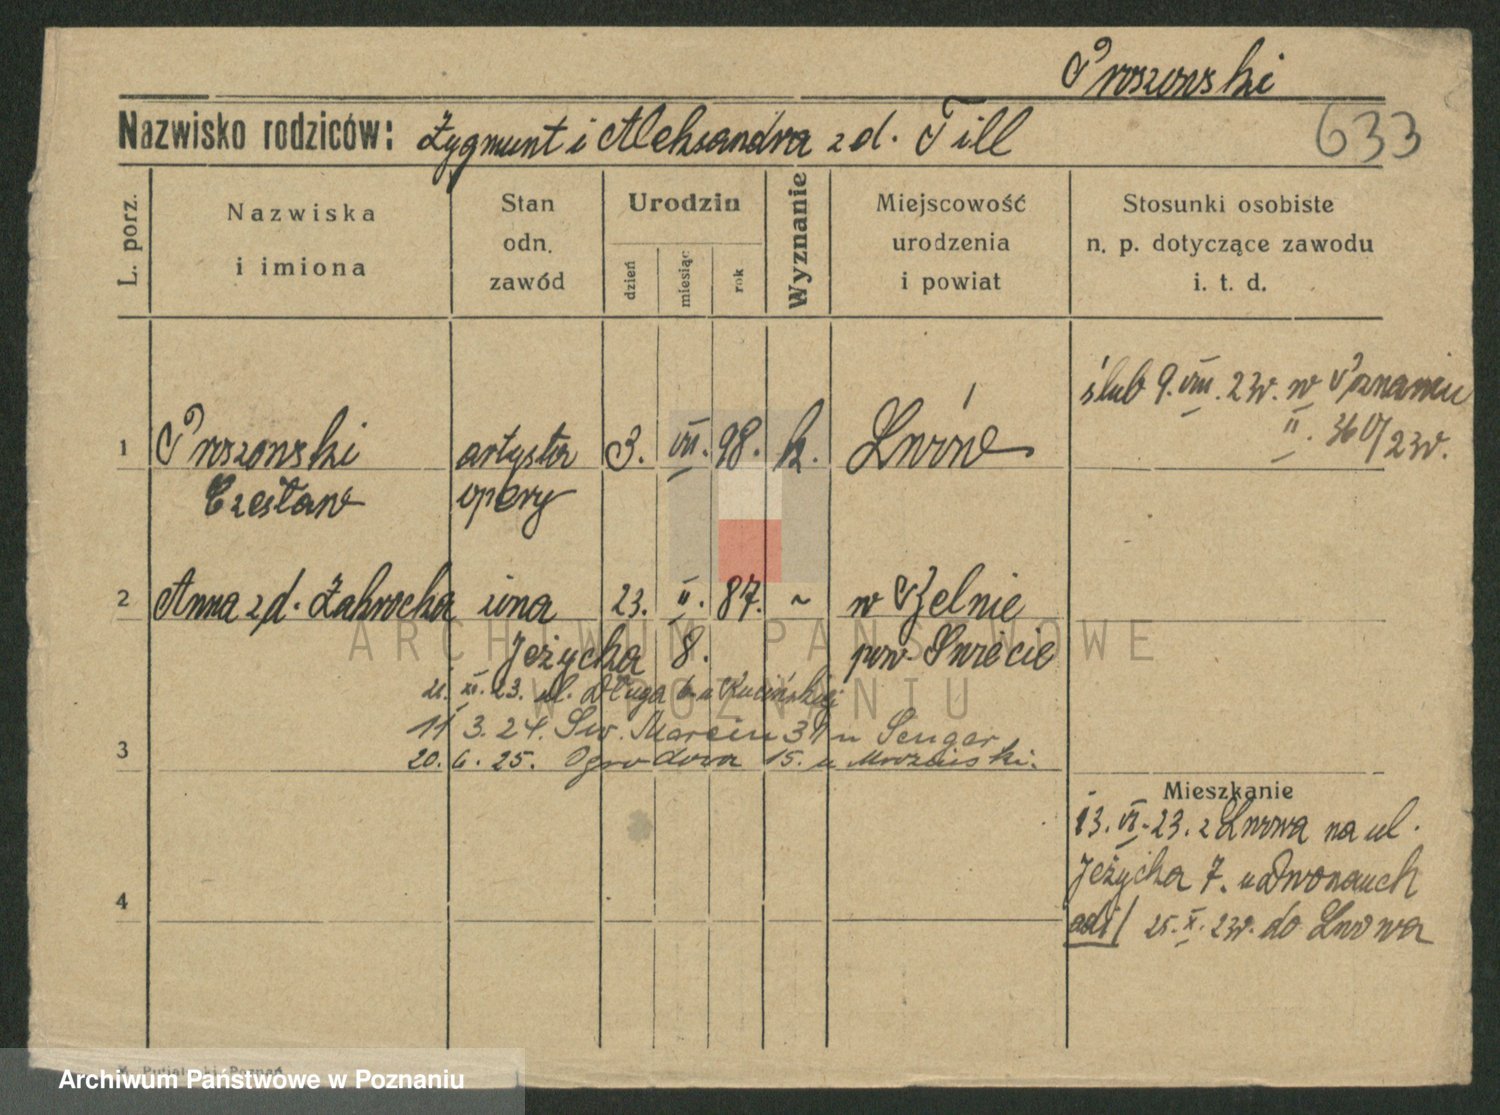 Proszowski
Nazwisko rodziców: Zygmunt i Aleksandra z d. Till
633
L. porz.
Nazwiska
i imiona
Stan
odn.
zawód
Urodzin
dzień
miesiąc
rok
Wyznanie
Miejscowość
urodzenia
i powiat
Stosunki osobiste
n. p. dotyczące zawodu
i. t. d.
ślub 9. VIII. 23r. w Poznaniu
II. 360/23r.
1 Proszowski artysta 3. VII. 98. k. Lwów
Czesław opery
2 Anna z d. Żakrocka żona 23. II. 87. ~ w Zelnie
Jeżycka 8. pow. Świecie
21. XI. 23. ul. Długa 6 u
11 3. 24. Św. Marcin u Senger
3
20. 6. 25. Ogrodowa 15. u
Mieszkanie
13. VI. 23. z Lwowa na ul.
Jeżycka 7. u
4
adl 25. X. 23r. do Lwowa
Putiatycki, Poznań
ARCHIWUM PAŃSTWOWE
W POZNANIU
Archiwum Państwowe w Poznaniu